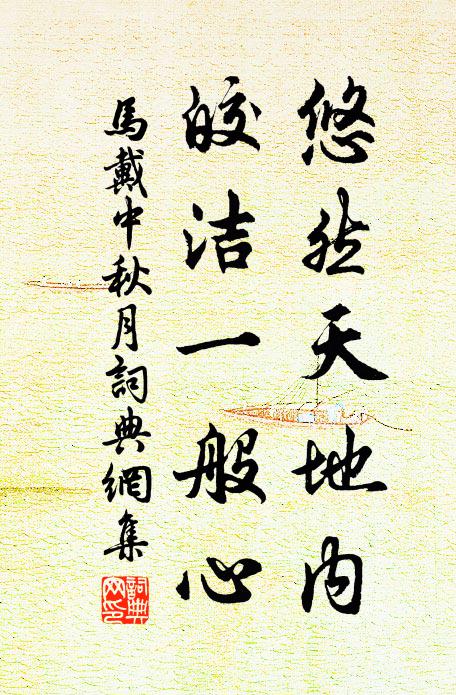 悠然天地內
皎洁一般心
馬戴中秋月詞典網集
詞典
网印